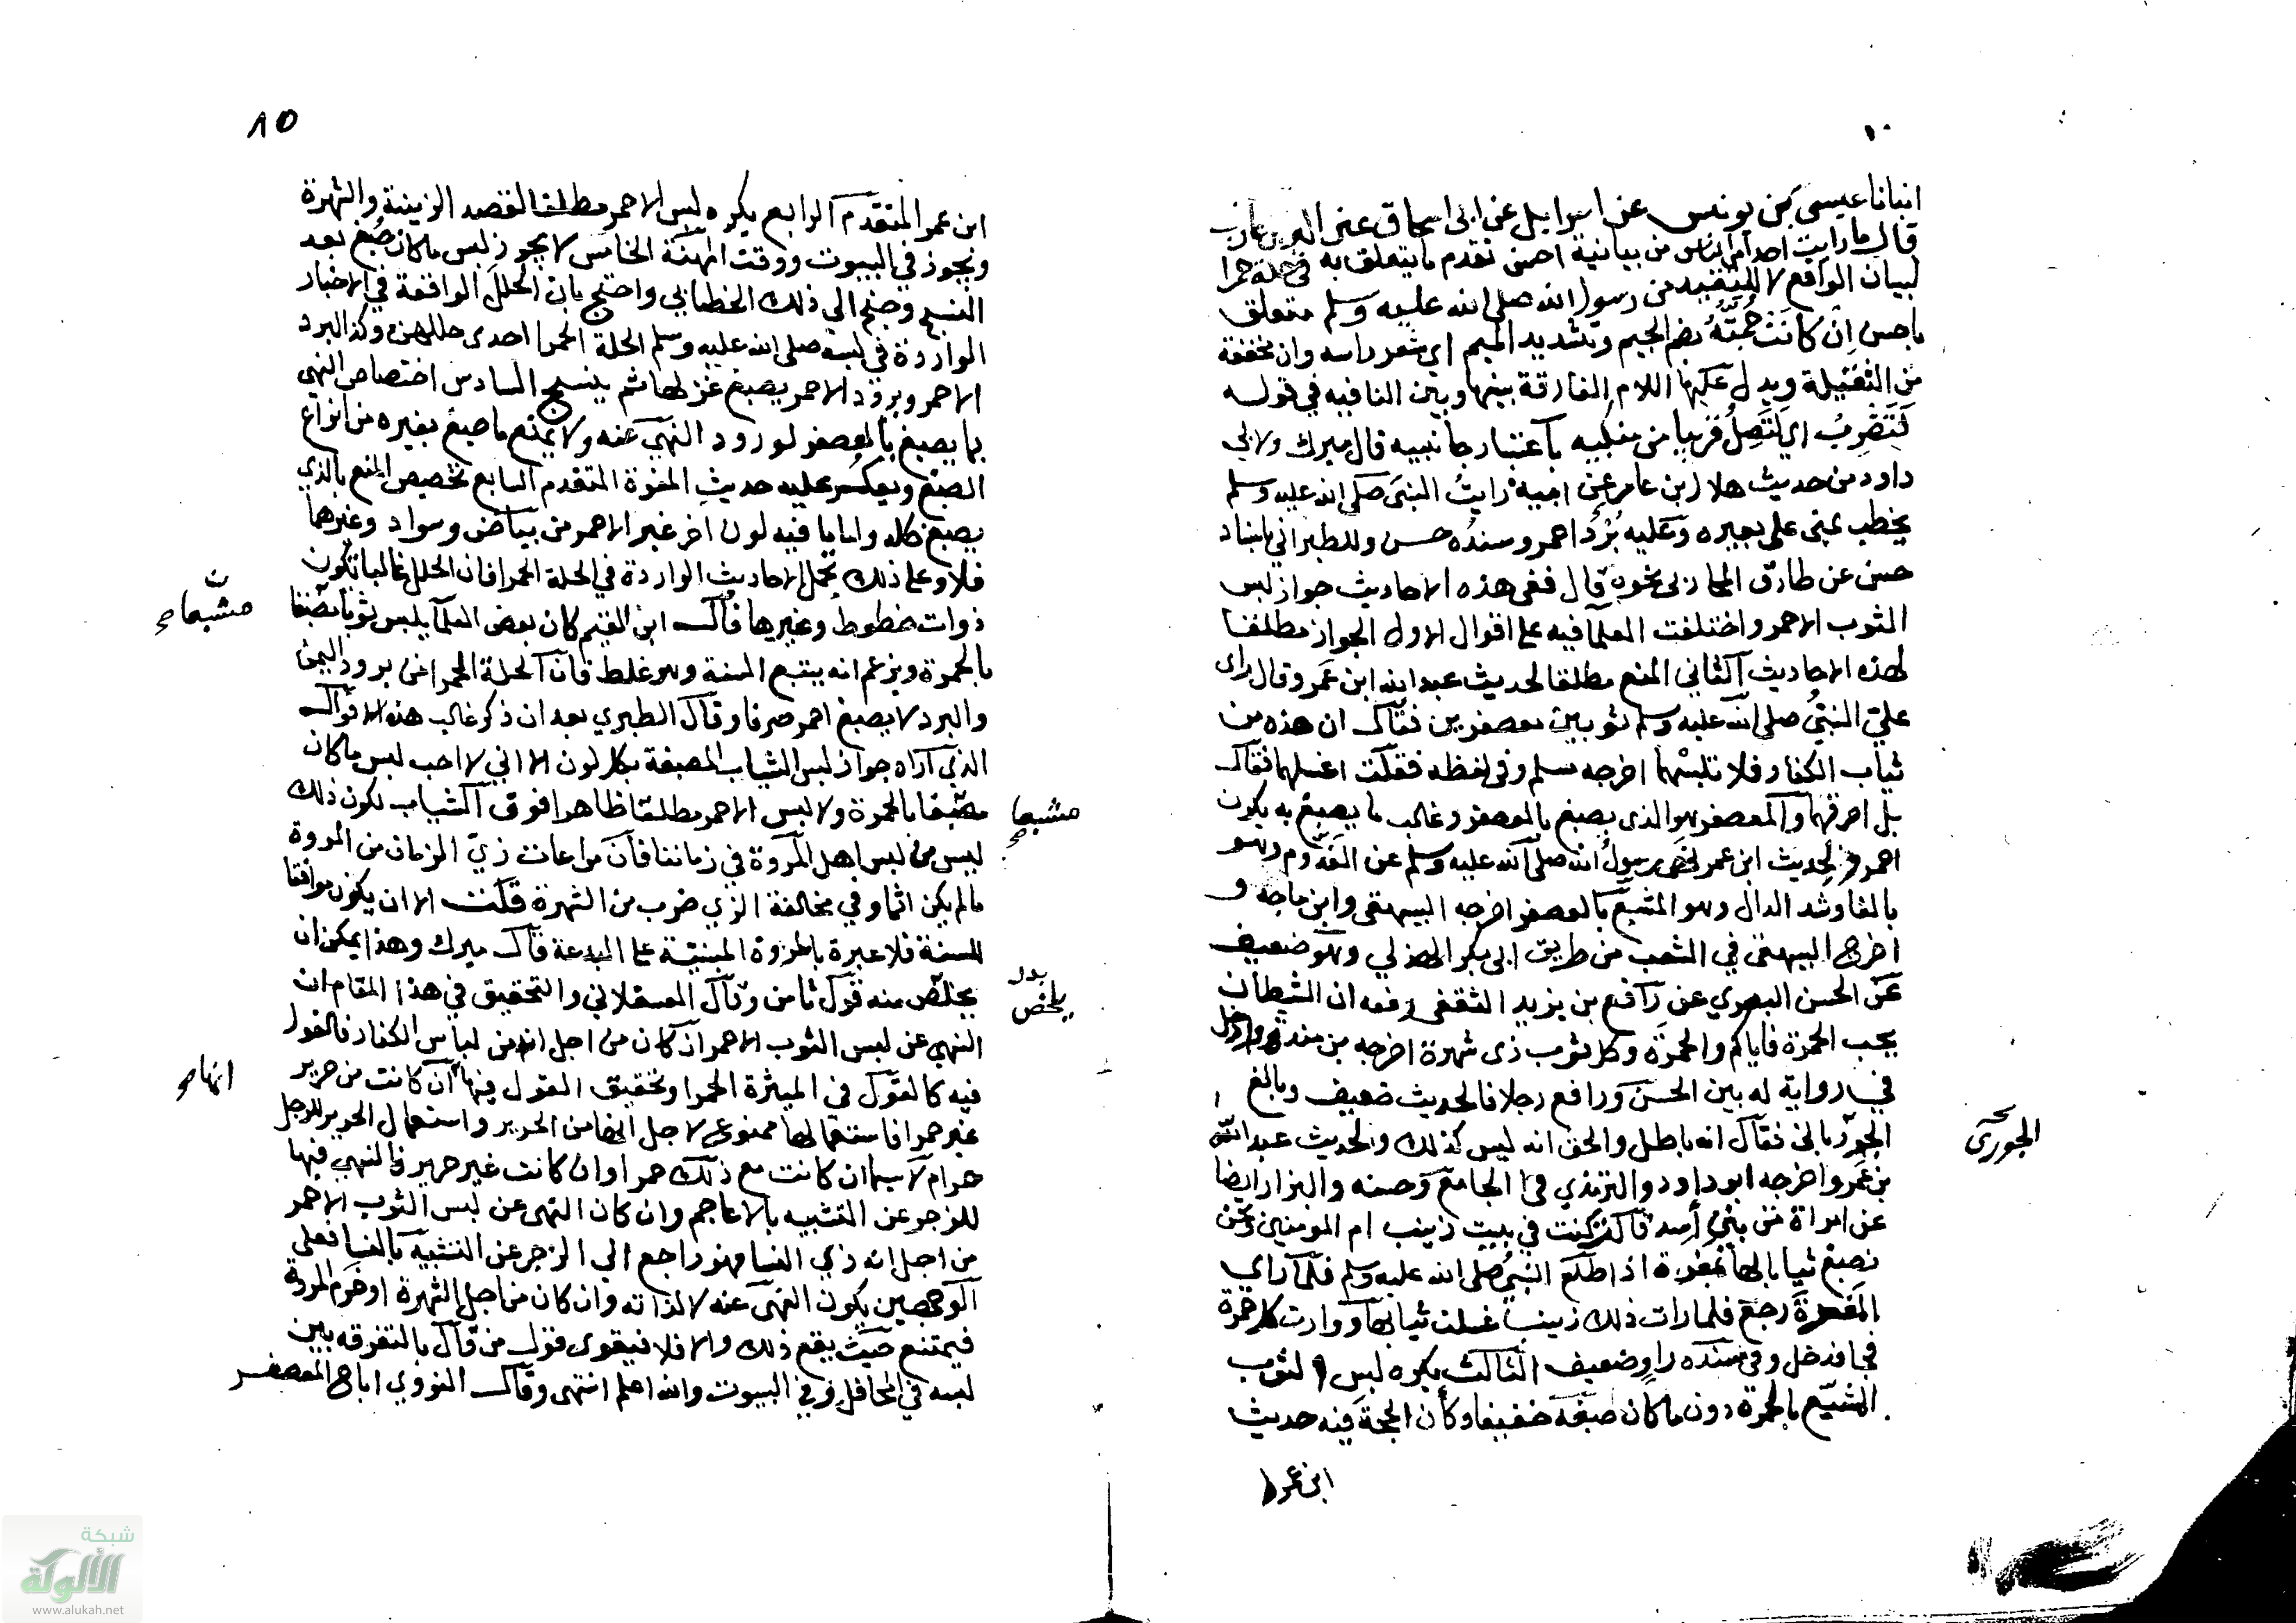 انبانا عيسى بن يونس عن اسرايل عن ابى اسحاق عن البرا بن عازب
قال ما رايت احدا من الناس من بيانية احسن تقدم ما يتعلق به في حلة حمرا
لبيان الواقع لا للتقييد من رسول الله صلى الله عليه وسلم متعلق
باحسن ان كانت جمته بضم الجيم وتشديد الميم اي شعر راسه وان مخففة
من الثقيلة ويدل عليها اللام الفارقة بينها وبين النافيه في قوله
لتضرب اي لتصل قريبا من منكبيه باعتبار جانبيه قال ميرك ولابي
داود من حديث هلال بن عامر عن ابيه رايت النبى صلى الله عليه وسلم
يخطب بمنى على بعيره وعليه برد احمر وسنده حسن وللطبراني باسناد
حسن عن طارق المحاربى نحوه قال ففى هذه الاحاديث جواز لبس
الثوب الاحمر واختلفت العلما فيه على اقوال الاول الجواز مطلقا
لهذه الاحاديث الثاني المنع مطلقا لحديث عبد الله ابن عمر وقال راى
على النبي صلى الله عليه وسلم ثوبين معصفرين فقال ان هذه من
ثياب الكفار فلا تلبسهما اخرجه مسلم وفى لفظه فقلت اغسلهما فقال
بل احرقهما والمعصفر هو الذى يصبغ بالعصفر وغالب ما يصبغ به يكون
احمر ولحديث ابن عمر نهى رسول الله صلى الله عليه وسلم عن الفدم وهو
بالفا وشد الدال وهو المشبع بالعصفر اخرجه البيهقى وابن ماجه و
اخرج البيهقى في الشعب من طريق ابى بكر الهذلي وهو ضعيف
عن الحسن البصري عن رافع بن يزيد الثقفى رفعه ان الشيطان
يحب الحمرة فاياكم والحمرة وكل ثوب ذى شهرة اخرجه بن منده وادخل
في رواية له بين الحسن ورافع رجلا فالحديث ضعيف وبالغ
الجوزقانى فقال انه باطل والحق انه ليس كذلك والحديث عبد الله
بن عمرو اخرجه ابو داود والترمذي فى الجامع وحسنه والبزار ايضا
عن امراة من بني اسد قالت كنت في بيت زينب ام المومنين ونحن
نصبغ ثيابا لها بمغرة اذا طلع النبي صلى الله عليه وسلم فلما راي
المغرة رجع فلما رات ذلك زينب غسلت ثيابها ووارت كل حمرة
فجا فدخل وفى سنده راو ضعيف الثالث يكره لبس الثوب
المشبع بالحمرة دون ما كان صبغه خفيفا وكان الحجة فيه حديث
ابن عمر
الجورى
٨٥
ابن عمر المتقدم الرابع يكره لبس الاحمر مطلقا لقصد الزينة والشهرة
ويجوز في البيوت ووقت المهنة الخامس لا يجوز لبس ما كان صبغ بعد
النسج وجنح الي ذلك الخطابي واحتج بان الحلل الواقعة في الاخبار
الواردة في لبسه صلى الله عليه وسلم الحلة الحمرا احدى حلل اليمن وكذا البرد
الاحمر وبرود الاحمر يصبغ غزلها ثم ينسج السادس اختصاص النهي
بما يصبغ بالعصفر لورود النهي عنه ولا يمنع ما صبغ بغيره من انواع
الصبغ ويعكر عليه حديث المغرة المتقدم السابع تخصيص المنع بالذي
يصبغ كله واما ما فيه لون اخر غير الاحمر من بياض وسواد وغيرهما
فلا وعلى ذلك تحمل الاحاديث الواردة في الحلة الحمرا فان الحلل غالبا تكون
ذوات خطوط وغيرها قال ابن القيم كان بعض العلما يلبس ثوبا مصبغا
بالحمرة ويزعم انه يتبع السنة وهو غلط فان الحلة الحمرا من برود اليمن
والبرد لا يصبغ احمر صرفا وقال الطبري بعد ان ذكر غالب هذه الاقوال
الذي اراه جواز لبس الثياب المصبغة بكل لون الا اني لا احب لبس ما كان
مصبغا بالحمرة ولا لبس الاحمر مطلقا ظاهرا فوق الثياب لكون ذلك
ليس من لبس اهل المروة في زماننا فان مراعات زي الزمان من المروة
مالم يكن اثما وفي مخالفة الزي ضرب من الشهرة قلت الا ان يكون موافقا
للسنة فلا عبرة بالمروة المبنية على البدعة قال ميرك وهذا يمكن ان
يخلص منه قول ثامن وقال العسقلاني والتحقيق في هذا المقام ان
النهي عن لبس الثوب الاحمر ان كان من اجل انه من لباس الكفار فالقول
فيه كالقول في الميثرة الحمرا وتحقيق القول فيها ان كانت من حرير
غير حمرا فاستعمالها ممنوع لاجل انها من الحرير واستعمال الحرير للرجل
حرام لا سيما ان كانت مع ذلك حمرا وان كانت غير حرير فالنهي فيها
للزجر عن التشبيه بالاعاجم وان كان النهى عن لبس الثوب الاحمر
من اجل انه زي النسا فهو راجع الى الزجر عن التشبيه بالنسا فعلى
الوجهين يكون النهى عنه لا لذاته وان كان من اجل الشهرة او خرم المروة
فيمتنع حيث يقع ذلك والا فلا فيقوى قول من قال بالتفرقه بين
لبسه في المحافل وفي البيوت والله اعلم انتهى وقال النووي اباح المعصفر
مشبعا
مشبعا
بدل
يلخص
انها
شبكة
الألوكة
www.alukah.net